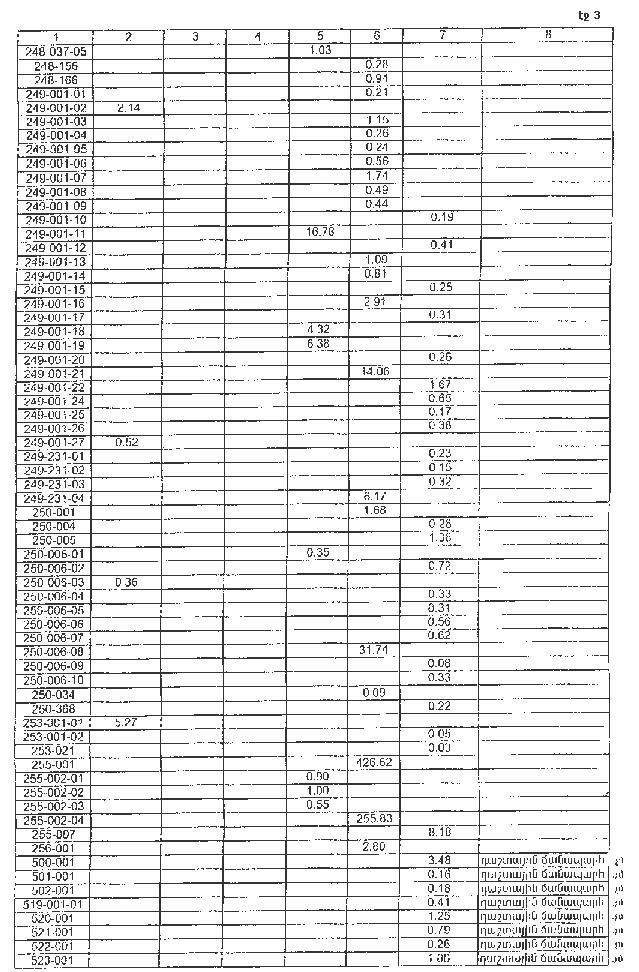 էջ 3
1 2 3 4 5 6 7 8
248-037-05 1.03
248-156 0.28
248-166 0.91
249-001-01 0.21
249-001-02 2.14
249-001-03 1.15
249-001-04 0.26
249-001-05 0.24
249-001-06 0.56
249-001-07 1.74
249-001-08 0.49
249-001-09 0.44
249-001-10 0.19
249-001-11 16.76
249-001-12 0.41
249-001-13 1.09
249-001-14 0.81
249-001-15 0.25
249-001-16 2.91
249-001-17 0.31
249-001-18 4.32
249-001-19 6.38
249-001-20 0.26
249-001-21 14.06
249-001-22 1.67
249-001-24 0.65
249-001-25 0.17
249-001-26 0.36
249-001-27 0.52
249-231-01 0.23
249-231-02 0.15
249-231-03 0.32
249-231-04 8.17
250-001 1.68
250-004 0.28
250-005 1.36
250-006-01 0.35
250-006-02 0.72
250-006-03 0.36
250-006-04 0.33
250-006-05 0.31
250-006-06 0.56
250-006-07 0.62
250-006-08 31.74
250-006-09 0.08
250-006-10 0.33
250-034 0.09
250-368 0.22
253-001-01 5.27
253-001-02 0.05
253-021
255-001 426.62
255-002-01 0.90
255-002-02 1.00
255-002-03 0.55
255-002-04 255.83
255-007 8.16
256-001 2.80
500-001 3.48 դաշտային ճանապարհ
501-001 0.16 դաշտային ճանապարհ
502-001 0.18 դաշտային ճանապարհ
519-001-01 0.41 դաշտային ճանապարհ
520-001 1.25 դաշտային ճանապարհ
521-001 0.79 դաշտային ճանապարհ
522-001 0.26 դաշտային ճանապարհ
523-001 դաշտային ճանապարհ